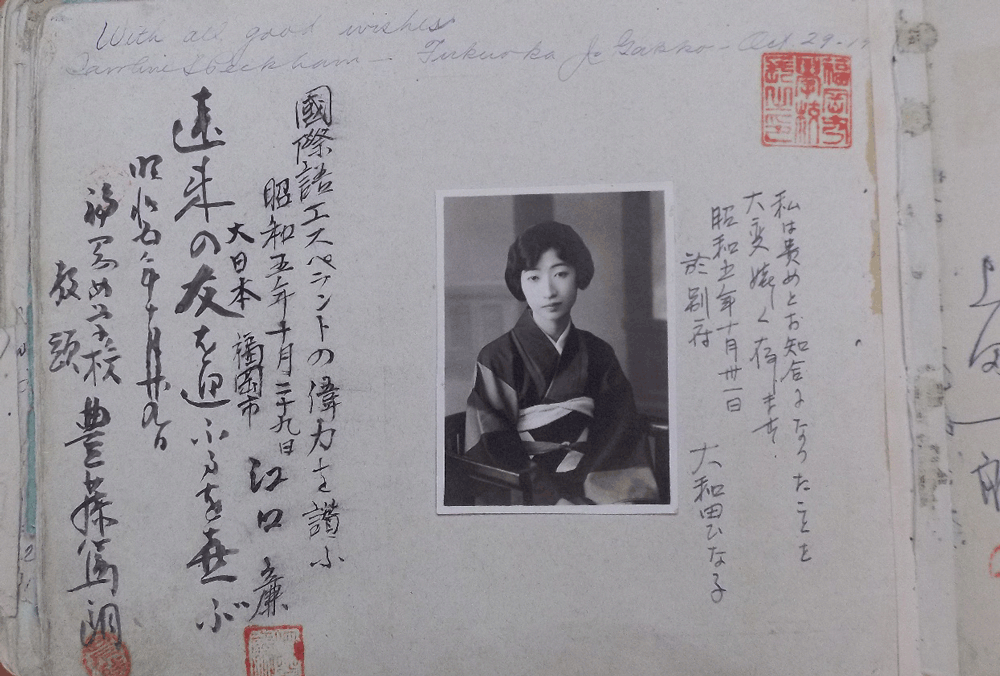 With all good wishes
Caroline S Peckham — Fukuoka Jo Gakko — Oct 29 - 19
福岡女
學校
私は貴めとお知合になりたことを
大変嬉しく存じます
昭和五年十月卅一日
於別府
大和田ひな子
國際語エスペラントの偉力を讃ふ
昭和五年十月二十九日
大日本 福岡市 江口廉
遠来の友を迎ふるを喜ぶ
昭和五年十月廿九日
福岡女学校
教頭 豊藤
上田一郎